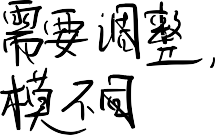 需要调整,
模不同